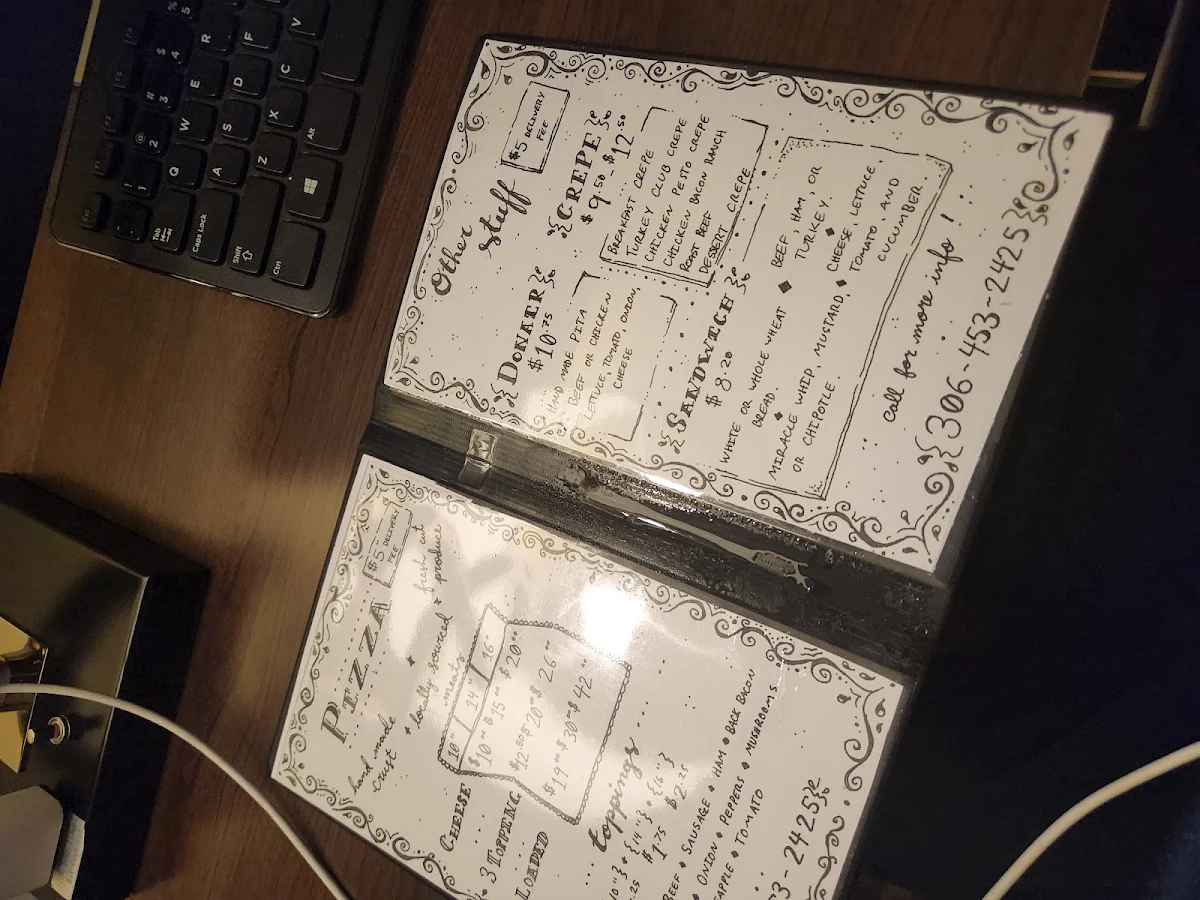 PIZZA
$5 DELIVERY
FEE
hand made
crust
locally sourced
meats
fresh cut
produce
10" 14" 16"
CHEESE $10 $15 $20
3 TOPPING $12.50 $20 $26
LOADED $19 $30 $42
toppings
10" {14"} {16"}
.25 $1.75 $2.25
BEEF SAUSAGE HAM BACK BACON
ONION PEPPERS MUSHROOMS
TOMATO
3-2425
Other
stuff
$5 DELIVERY
FEE
DONAIR
$10.75
HAND MADE PITA
BEEF OR CHICKEN
LETTUCE, TOMATO, ONION,
CHEESE
CREPE
$9.50-$12.50
BREAKFAST CREPE
TURKEY CLUB CREPE
CHICKEN PESTO CREPE
CHICKEN BACON RANCH
ROAST BEEF
DESSERT CREPE
SANDWITCH
$8.20
WHITE OR WHOLE WHEAT
BREAD
BEEF, HAM, OR
TURKEY.
MIRACLE WHIP, MUSTARD,
OR CHIPOTLE.
CHEESE, LETTUCE
TOMATO, AND
CUCUMBER
call for more info!
306-453-2425
Esc
! 1
@ 2
# 3
$ 4
% 5
Tab
Q
W
E
R
Caps Lock
A
S
D
F
Shift
Z
X
C
V
Ctrl
Alt